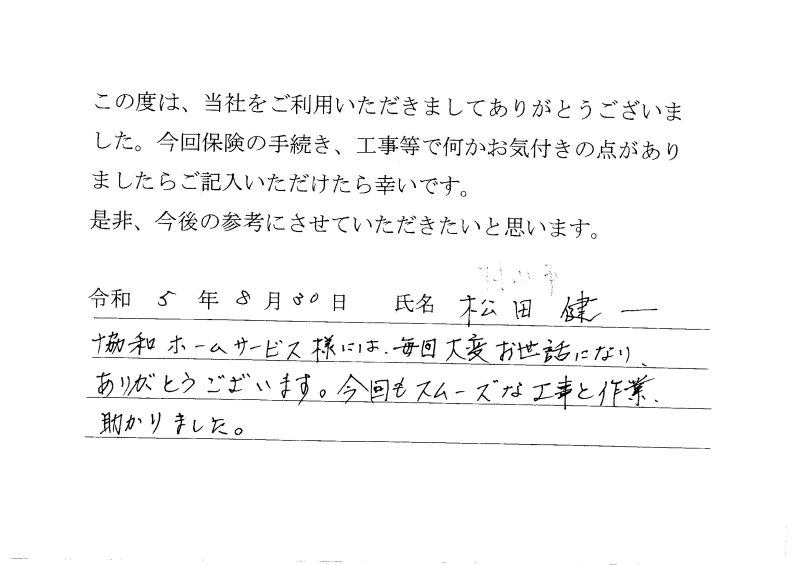 この度は、当社をご利用いただきましてありがとうございま
した。今回保険の手続き、工事等で何かお気付きの点があり
ましたらご記入いただけたら幸いです。
是非、今後の参考にさせていただきたいと思います。
令和 5 年 8 月 30 日 氏名 松田 健一
協和ホームサービス様には、毎回大変お世話になり、
ありがとうございます。今回もスムーズな工事と作業、
助かりました。